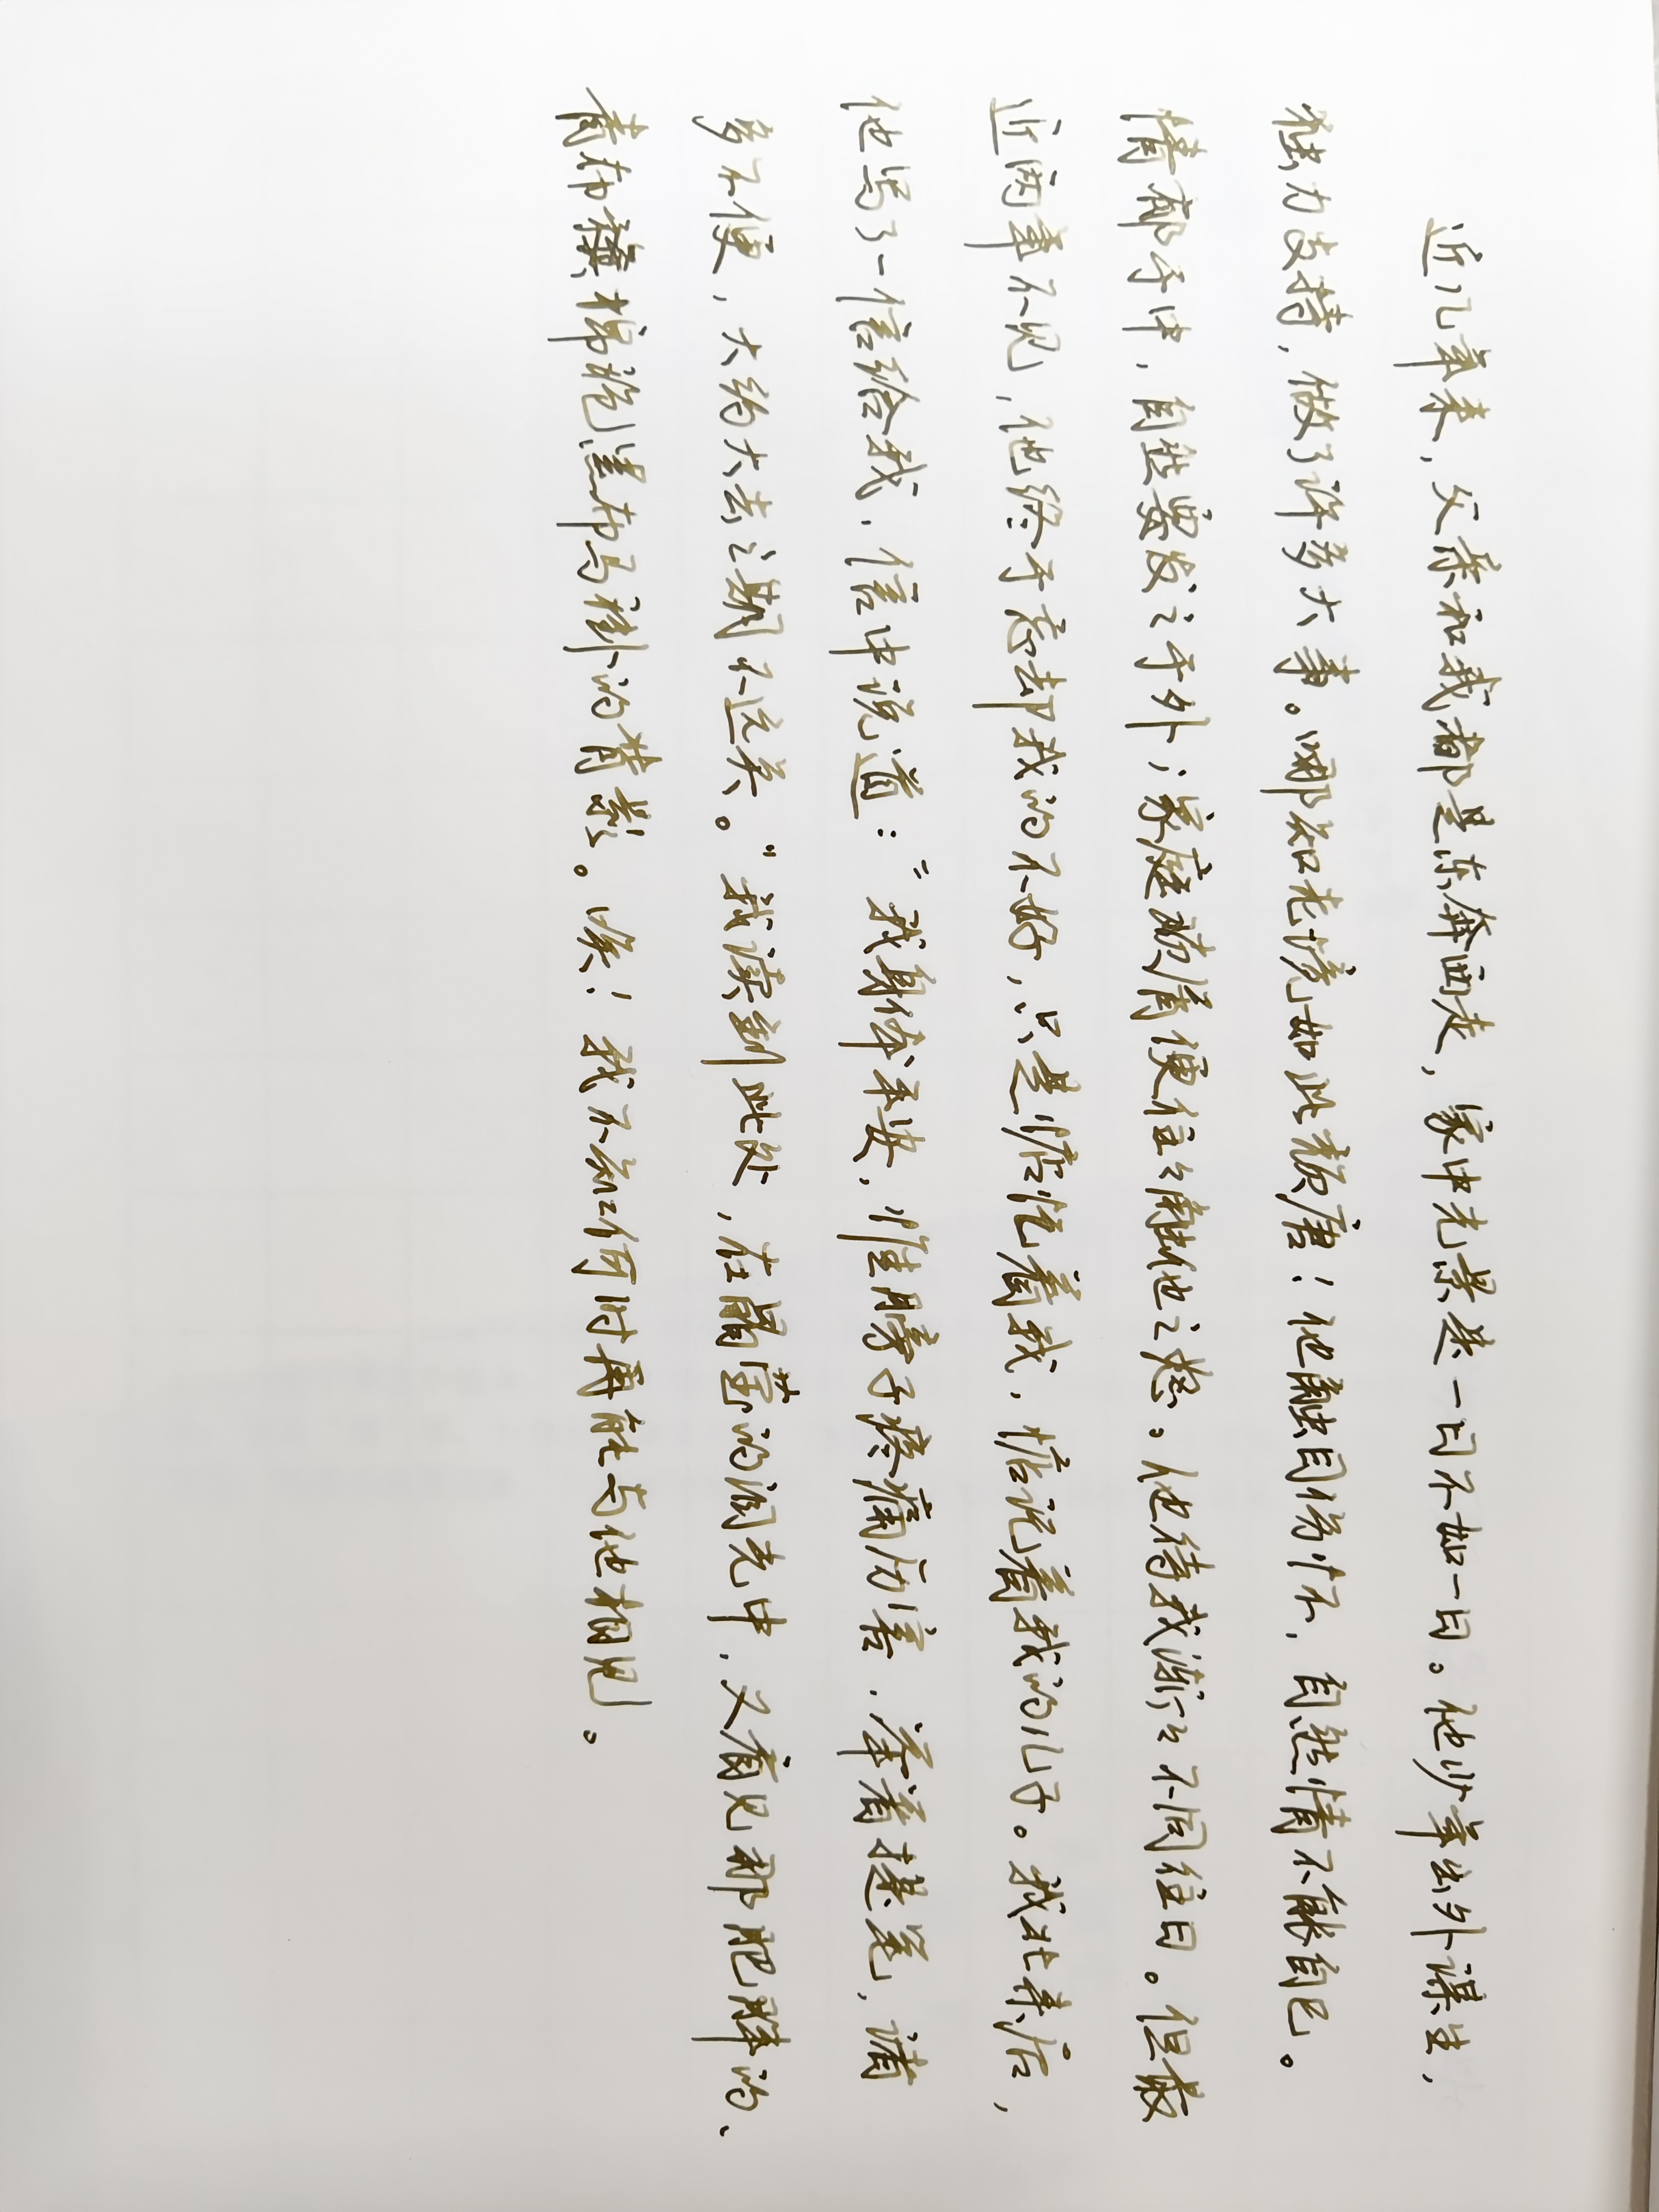 近几年来，父亲和我都是东奔西走，家中光景是一日不如一日。他少年出外谋生，
独力支持，做了许多大事。哪知老境却如此颓唐！他触目伤怀，自然情不能自已。
情郁于中，自然要发之于外；家庭琐屑便往往触他之怒。他待我渐渐不同往日。但最
近两年不见，他终于忘却我的不好，只是惦记着我，惦记着我的儿子。我北来后，
他写了一信给我，信中说道：“我身体平安，惟膀子疼痛厉害，举箸提笔，诸
多不便，大约大去之期不远矣。”我读到此处，在晶莹的泪光中，又看见那肥胖的、
青布棉袍黑布马褂的背影。唉！我不知何时再能与他相见。